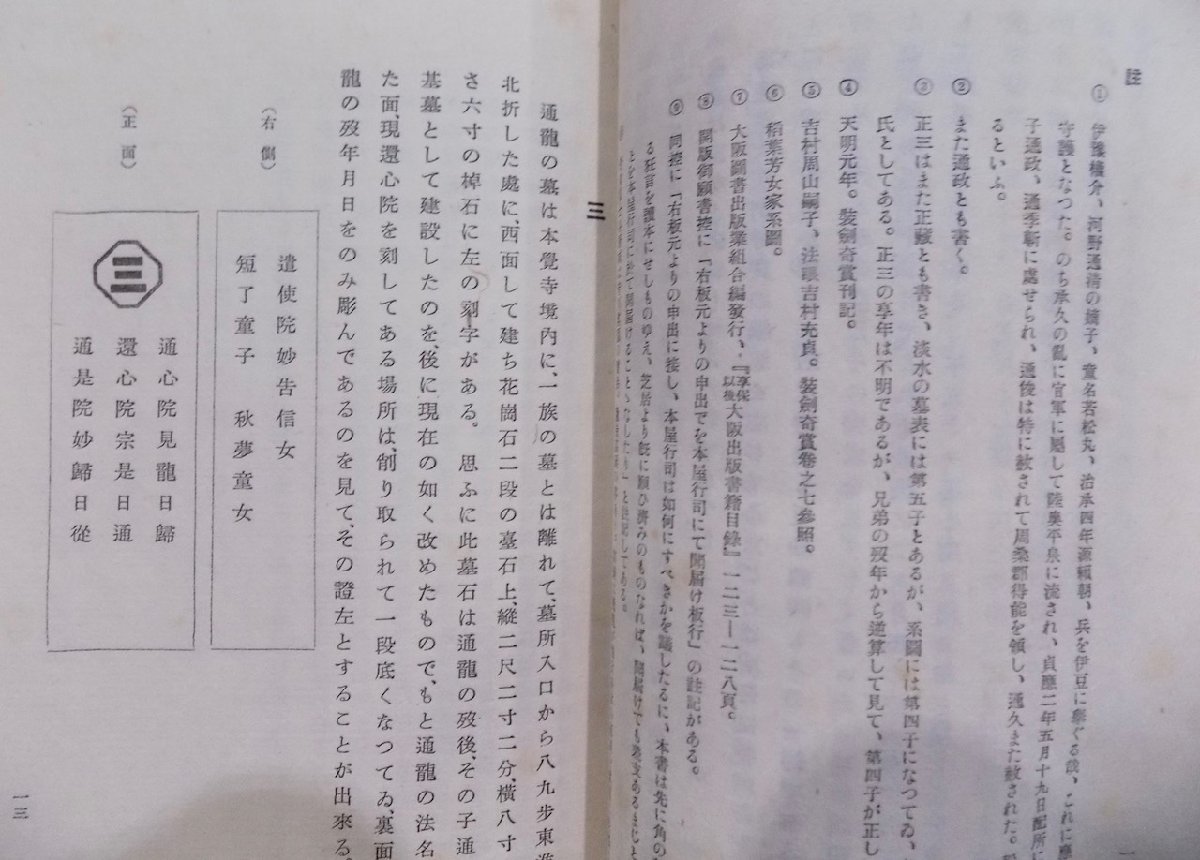 註
① 伊豫權介、河野通清の嫡子、童名若松丸、治承四年源賴朝、兵を伊豆に擧ぐる哉、これに應
守護となつた。のち承久の亂に官軍に屬して陸奧平泉に流され、貞應二年五月十九日配所に
子通政、通季斬に處せられ、通後は特に赦されて周桑郡得能を領し、通久また赦された。
るといふ。
② また通政とも書く。
③ 正三はまた正藏とも書き、淡水の墓表には第五子とあるが、系圖には第四子になつてゐ、
氏としてある。正三の享年は不明であるが、兄弟の歿年から逆算して見て、第四子が正し
④ 天明元年。裝劍奇賞刊記。
⑤ 吉村周山嗣子、法眼吉村充貞。裝劍奇賞卷之七參照。
⑥ 稻葉芳女家系圖。
⑦ 大阪圖書出版業組合編發行、『享保以後大阪出版書籍目錄』一二三—一二八頁。
⑧ 開版御願書控に「右板元よりの申出でを本屋行司にて聞屆け板行」の註記がある。
⑨ 同控に「右板元よりの申出に接し、本屋行司は如何にすべきかを議したるに、本書は先に角の
る狂言を讀本にせしものゆえ、芝居より旣に願ひ濟みのものなれば、聞屆けても
三
通龍の墓は本覺寺境内に、一族の墓とは離れて、墓所入口から八九步東進
北折した處に、西面して建ち花崗石二段の臺石上、縱二尺二寸二分、橫八寸
さ六寸の棹石に左の刻字がある。 思ふに此墓石は通龍の歿後、その子通
基墓として建設したのを、後に現在の如く改めたもので、もと通龍の法名
た面、現還心院を刻してある場所は、削り取られて一段底くなつてゐ、裏面
龍の歿年月日をのみ彫んであるのを見て、その證左とすることが出來る。
（右側）
遣使院妙告信女
短了童子 秋夢童女
（正面）
通心院見龍日歸
還心院宗是日通
通是院妙歸日從
一三